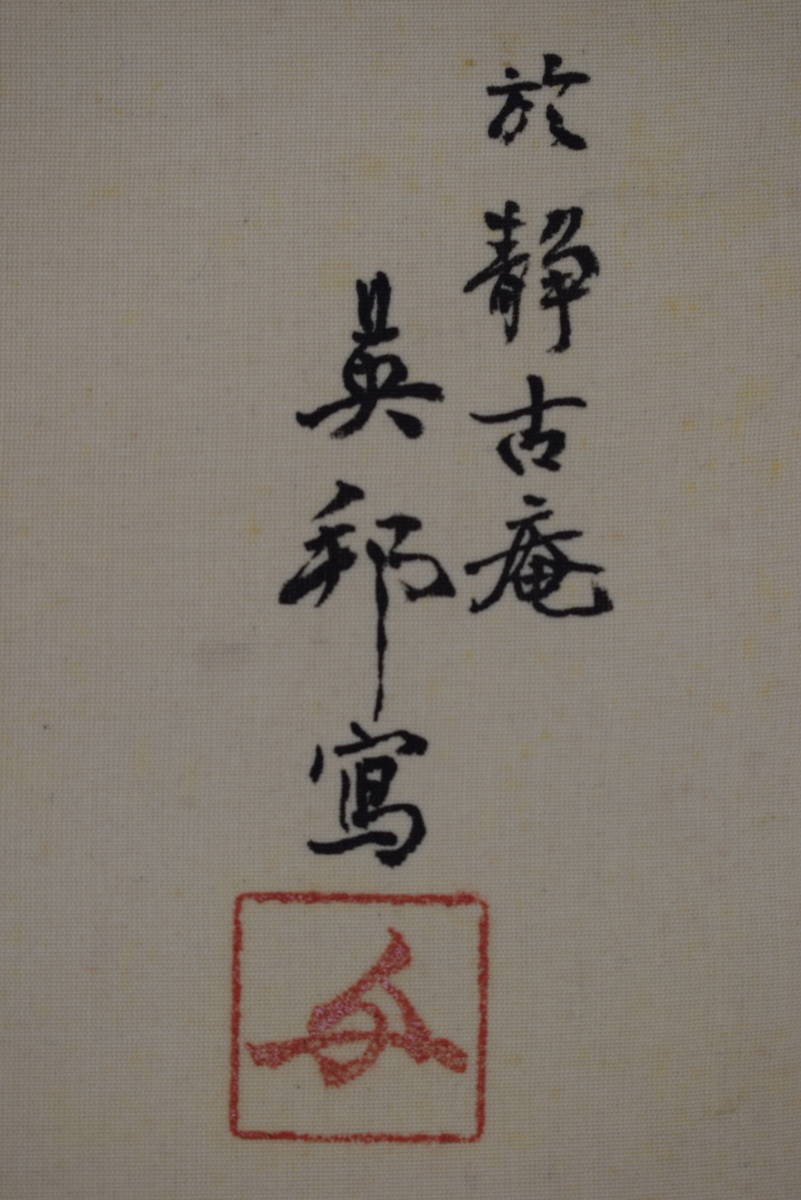 於静古庵
邦寫